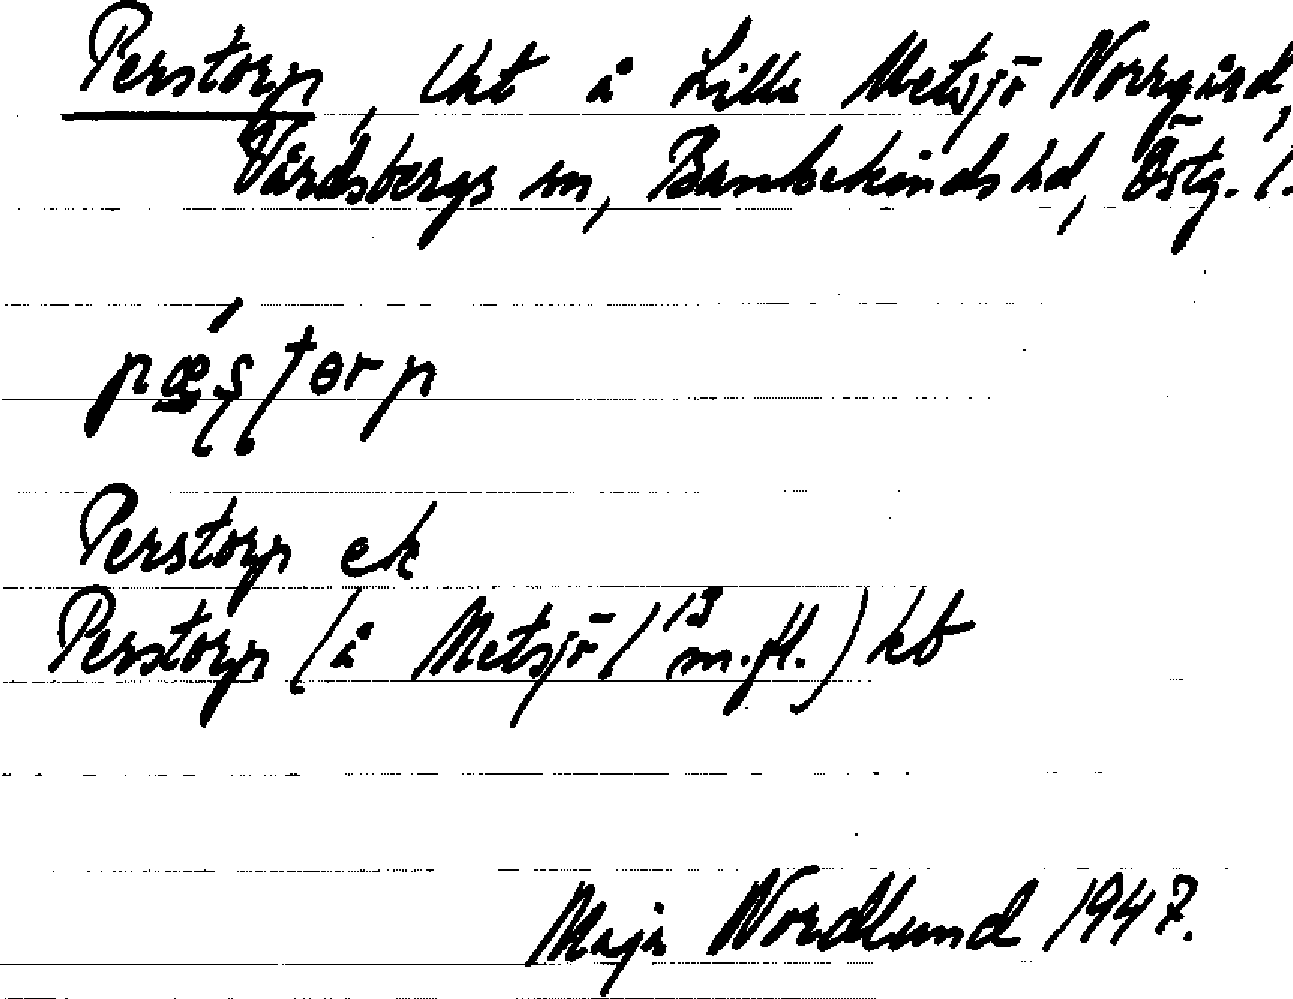 Perstorp, lht å Lilla Metsjö Norrgård,
Vårdsbergs sn, Bankekinds hd, Östg. l.
pǽ̲ṣṭɵrp
Perstorp ek
Perstorp (å Metsjö (13 m.fl.) kb
Maja Nordlund 1947.